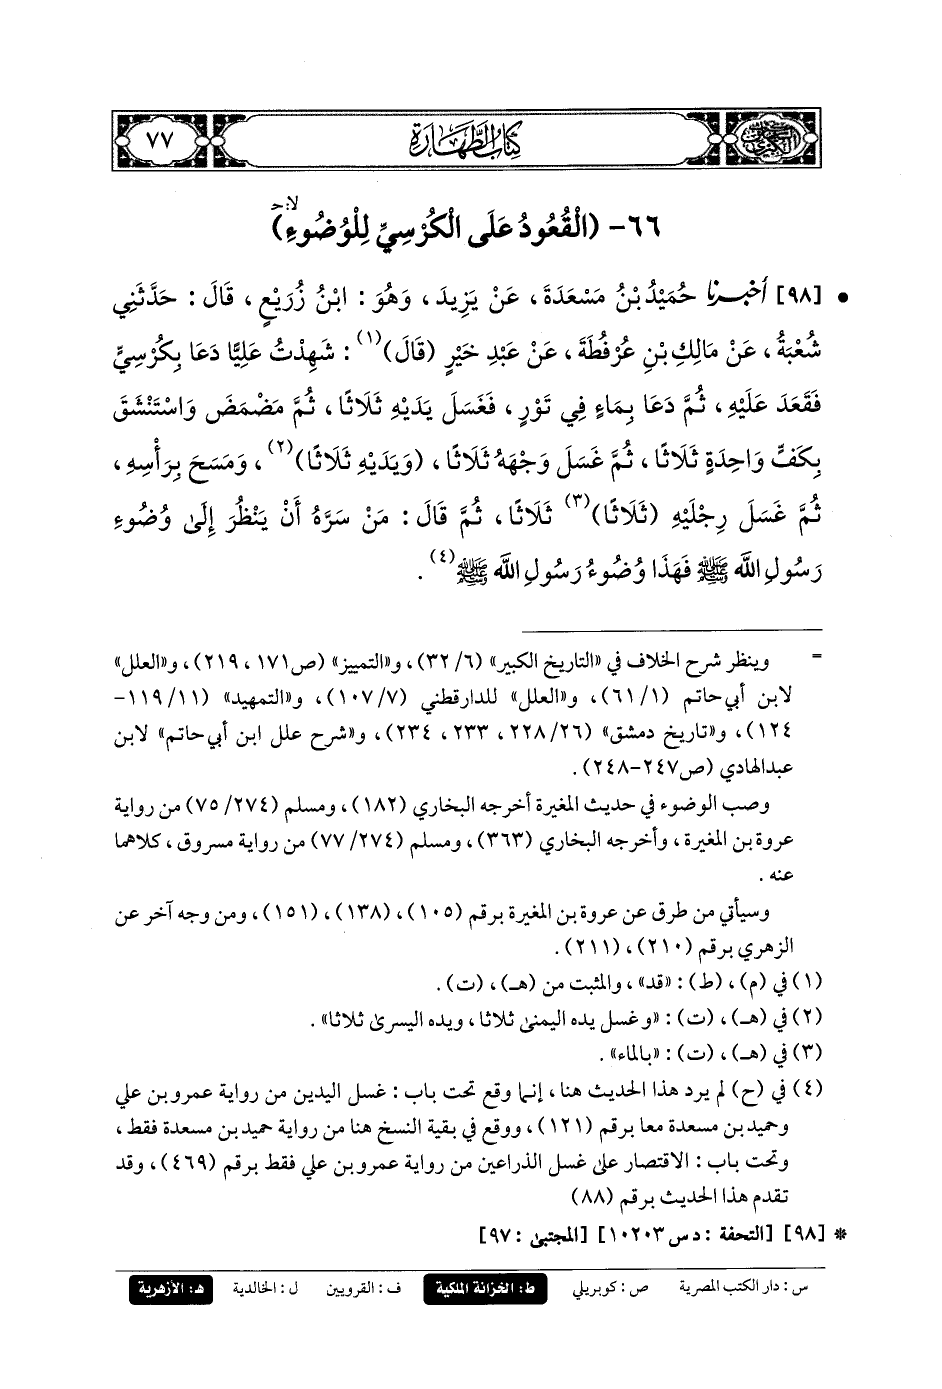 كتاب الطهارة ٧٧
٦٦- (الْقُعُودُ عَلَى الْكُرْسِيِّ لِلْوُضُوءِ) لا: ح
• [٩٨] أخبرنا حُمَيْدُ بْنُ مَسْعَدَةَ، عَنْ يَزِيدَ، وَهُوَ: ابْنُ زُرَيْعٍ، قَالَ: حَدَّثَنِي
شُعْبَةُ، عَنْ مَالِكِ بْنِ عُرْفُطَةَ، عَنْ عَبْدِ خَيْرٍ (قَالَ)(١): شَهِدْتُ عَلِيًّا دَعَا بِكُرْسِيٍّ
فَقَعَدَ عَلَيْهِ، ثُمَّ دَعَا بِمَاءٍ فِي تَوْرٍ، فَغَسَلَ يَدَيْهِ ثَلَاثًا، ثُمَّ مَضْمَضَ وَاسْتَنْشَقَ
بِكَفٍّ وَاحِدَةٍ ثَلَاثًا، ثُمَّ غَسَلَ وَجْهَهُ ثَلَاثًا، (وَيَدَيْهِ ثَلَاثًا)(٢)، وَمَسَحَ بِرَأْسِهِ،
ثُمَّ غَسَلَ رِجْلَيْهِ (ثَلَاثًا)(٣) ثَلَاثًا، ثُمَّ قَالَ: مَنْ سَرَّهُ أَنْ يَنْظُرَ إِلَىٰ وُضُوءِ
رَسُولِ اللَّه ﷺ فَهَذَا وُضُوءُ رَسُولِ اللَّه ﷺ(٤).
= وينظر شرح الخلاف في «التاريخ الكبير» (٦/ ٣٢)، و«التمييز» (ص١٧١، ٢١٩)، و«العلل»
لابن أبي حاتم (١/ ٦١)، و«العلل» للدارقطني (٧/ ١٠٧)، و«التمهيد» (١١/ ١١٩-
١٢٤)، و«تاريخ دمشق» (٢٦/ ٢٢٨، ٢٣٣، ٢٣٤)، و«شرح علل ابن أبي حاتم» لابن
عبدالهادي (ص٢٤٧-٢٤٨).
وصب الوضوء في حديث المغيرة أخرجه البخاري (١٨٢)، ومسلم (٢٧٤/ ٧٥) من رواية
عروة بن المغيرة، وأخرجه البخاري (٣٦٣)، ومسلم (٢٧٤/ ٧٧) من رواية مسروق، كلاهما
عنه.
وسيأتي من طرق عن عروة بن المغيرة برقم (١٠٥)، (١٣٨)، (١٥١)، ومن وجه آخر عن
الزهري برقم (٢١٠)، (٢١١).
(١) في (م)، (ط): «قد»، والمثبت من (هـ)، (ت).
(٢) في (هـ)، (ت): «وغسل يده اليمنى ثلاثا، ويده اليسرى ثلاثا».
(٣) في (هـ)، (ت): «بالماء».
(٤) في (ح) لم يرد هذا الحديث هنا، إنما وقع تحت باب: غسل اليدين من رواية عمرو بن علي
وحميد بن مسعدة معا برقم (١٢١)، ووقع في بقية النسخ هنا من رواية حميد بن مسعدة فقط،
وتحت باب: الاقتصار على غسل الذراعين من رواية عمرو بن علي فقط برقم (٤٦٩)، وقد
تقدم هذا الحديث برقم (٨٨)
* [٩٨] [التحفة: د س ١٠٢٠٣] [المجتبى: ٩٧]
س: دار الكتب المصرية ص: كوبريلي ط: الخزانة الملكية ف: القرويين ل: الخالدية هـ: الأزهرية